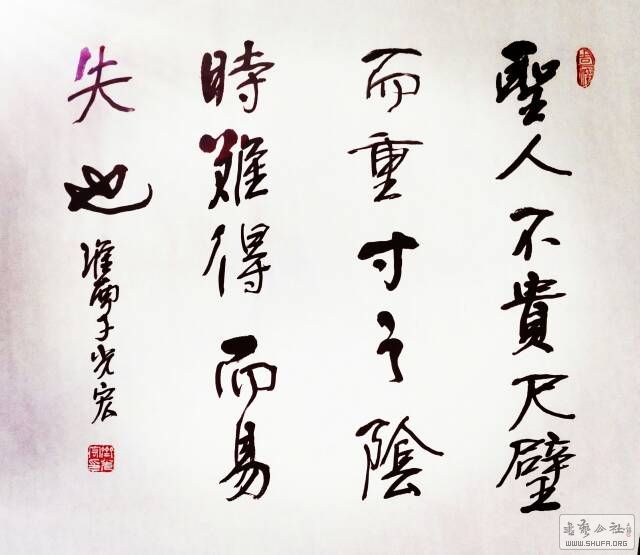 聖人不貴尺璧
而重寸之陰
時難得而易
失也
淮南子光宏
書藝公社
WWW.SHUFA.ORG